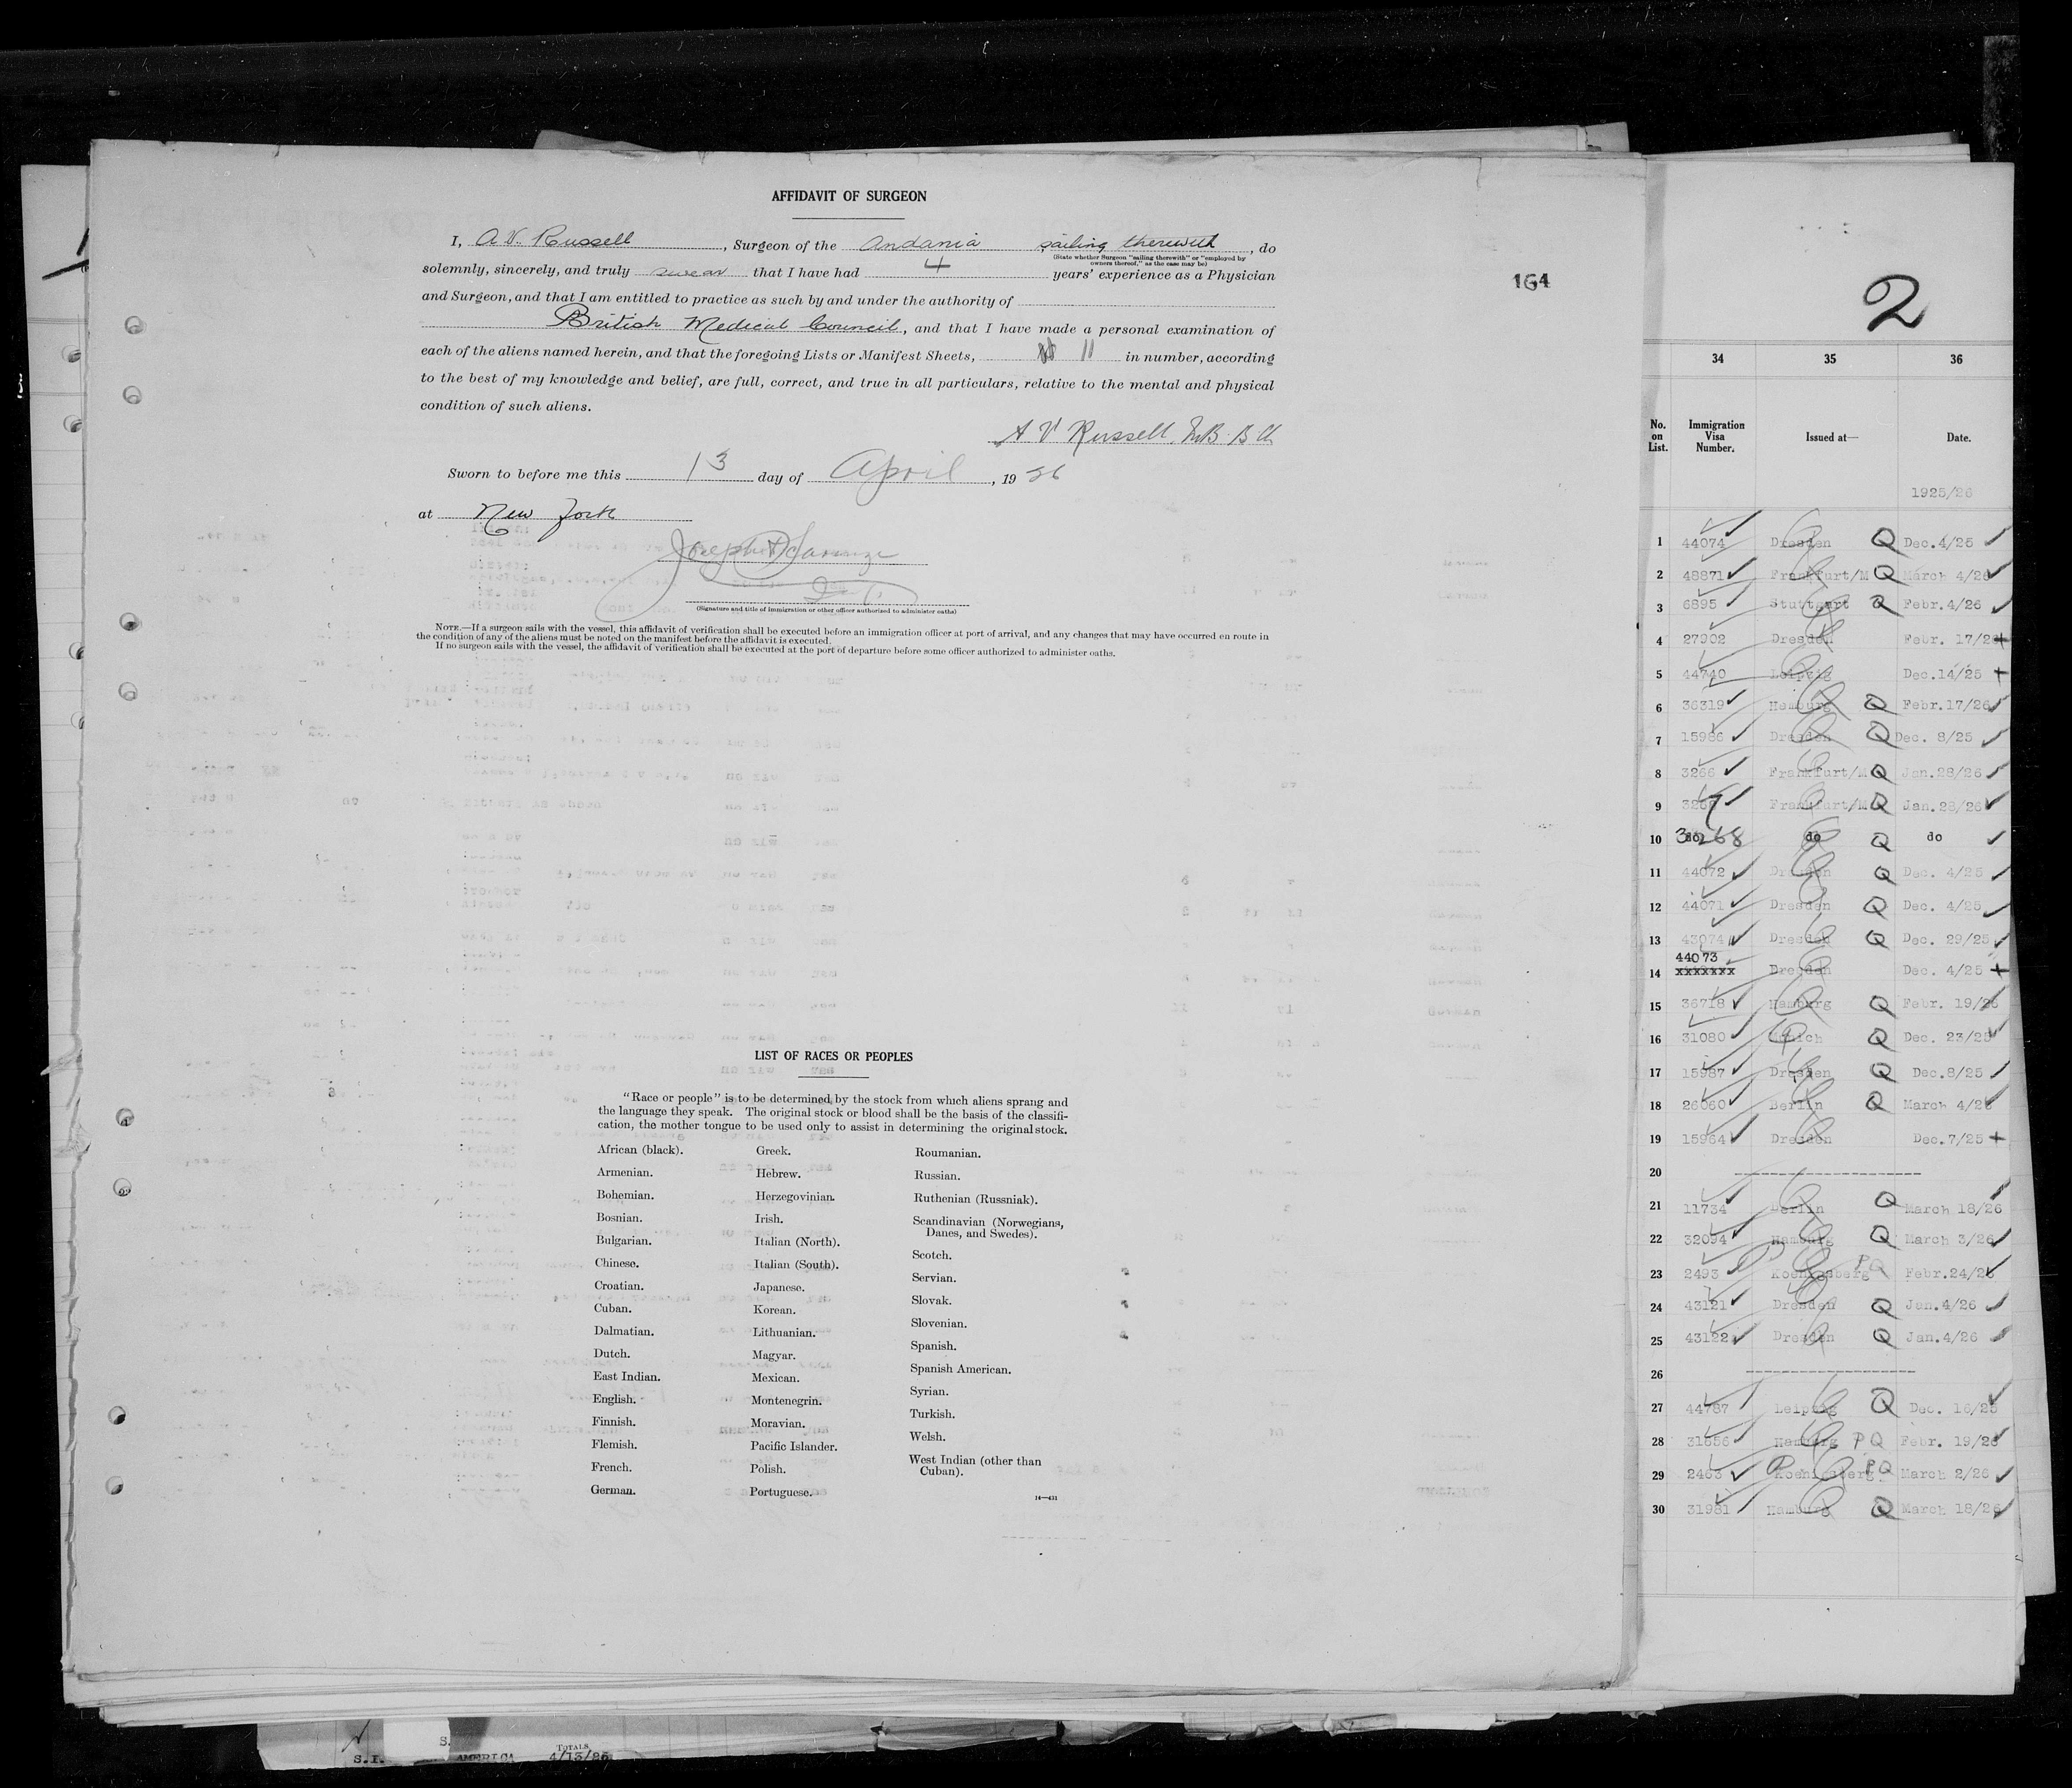 AFFIDAVIT OF SURGEON
I, A. V. Russell, Surgeon of the Andania sailing therewith, do
(State whether Surgeon "sailing therewith" or "employed by
owners thereof," as the case may be)
solemnly, sincerely, and truly swear that I have had 4 years' experience as a Physician
and Surgeon, and that I am entitled to practice as such by and under the authority of
British Medical Council, and that I have made a personal examination of
each of the aliens named herein, and that the foregoing Lists or Manifest Sheets, 11 in number, according
to the best of my knowledge and belief, are full, correct, and true in all particulars, relative to the mental and physical
condition of such aliens.
A V Russell, M.B. B Ch
Sworn to before me this 13 day of April, 1926
at New York
(Signature and title of immigration or other officer authorized to administer oaths)
NOTE.—If a surgeon sails with the vessel, this affidavit of verification shall be executed before an immigration officer at port of arrival, and any changes that may have occurred en route in
the condition of any of the aliens must be noted on the manifest before the affidavit is executed.
If no surgeon sails with the vessel, the affidavit of verification shall be executed at the port of departure before some officer authorized to administer oaths.
164
LIST OF RACES OR PEOPLES
"Race or people" is to be determined by the stock from which aliens sprang and
the language they speak. The original stock or blood shall be the basis of the classifi-
cation, the mother tongue to be used only to assist in determining the original stock.
African (black).
Armenian.
Bohemian.
Bosnian.
Bulgarian.
Chinese.
Croatian.
Cuban.
Dalmatian.
Dutch.
East Indian.
English.
Finnish.
Flemish.
French.
German.
Greek.
Hebrew.
Herzegovinian.
Irish.
Italian (North).
Italian (South).
Japanese.
Korean.
Lithuanian.
Magyar.
Mexican.
Montenegrin.
Moravian.
Pacific Islander.
Polish.
Portuguese.
Roumanian.
Russian.
Ruthenian (Russniak).
Scandinavian (Norwegians,
Danes, and Swedes).
Scotch.
Servian.
Slovak.
Slovenian.
Spanish.
Spanish American.
Syrian.
Turkish.
Welsh.
West Indian (other than
Cuban).
14—431
2
34 35 36
No. on List. Immigration Visa Number. Issued at— Date.
1925/26
1 44074 Dresden Q Dec. 4/25
2 48871 Frankfurt/M Q March 4/26
3 6895 Stuttgart Q Febr. 4/26
4 27902 Dresden Febr. 17/26
5 44740 Leipzig Dec. 14/25
6 36319 Hamburg Q Febr. 17/26
7 15986 Dresden Q Dec. 8/25
8 3266 Frankfurt/M Q Jan. 28/26
9 3267 Frankfurt/M Q Jan. 28/26
10 3268 do Q do
11 44072 Dresden Q Dec. 4/25
12 44071 Dresden Q Dec. 4/25
13 43074 Dresden Q Dec. 29/25
44073
14 xxxxxxx Dresden Dec. 4/25
15 36718 Hamburg Q Febr. 19/26
16 31080 Munich Q Dec. 23/25
17 15987 Dresden Q Dec. 8/25
18 26060 Berlin Q March 4/26
19 15964 Dresden Dec. 7/25
20
21 11734 Berlin Q March 18/26
22 32094 Hamburg Q March 3/26
23 2493 P Koenigsberg PQ Febr. 24/26
24 43121 Dresden Q Jan. 4/26
25 43122 Dresden Q Jan. 4/26
26
27 44787 Leipzig Q Dec. 16/25
28 31656 Hamburg PQ Febr. 19/26
29 2463 P Koenigsberg PQ March 2/26
30 31981 Hamburg Q March 18/26
TOTALS
S.I. AMERICA 4/13/26